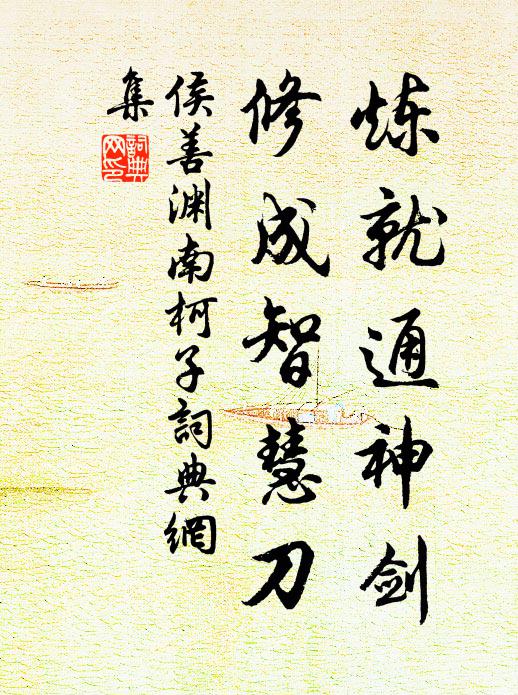 炼就通神剑
修成智慧刀
侯善渊南柯子詞典網
集
詞典
网印